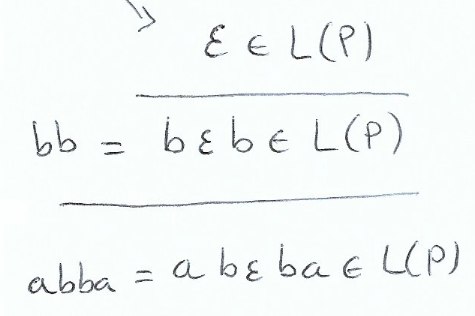 ε ∈ L(P)
bb = bεb ∈ L(P)
abba = abεba ∈ L(P)